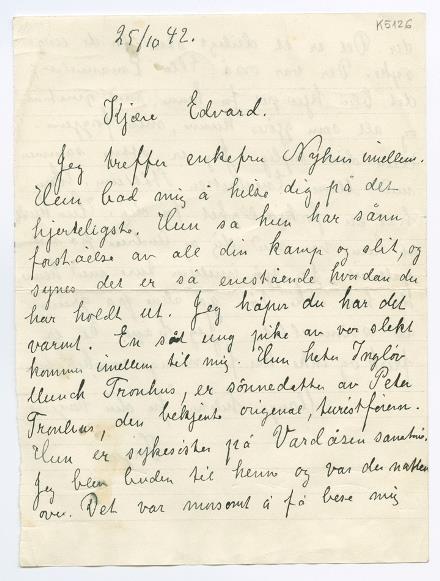 K5126
25/10 42.
Kjære Edvard.
Jeg treffer enkefru Nyhus imellem.
Hun bad mig å hilse dig på det
hjerteligste. Hun sa hun har sånn
forståelse av all din kamp og slit, og
synes det er så enestående hvordan du
har holdt ut. Jeg håper du har det
varmt. En søt ung pike av vor slekt
kommer imellem til mig. Hun heter Ingløv
Munch Tronhus, er sönnedatter av Peter
Tronhus, den bekjente original, turistföreren.
Hun er sykesöster på Vardåsen
Jeg blev buden til henne og var der natten
over. Det var morsomt å få bese mig